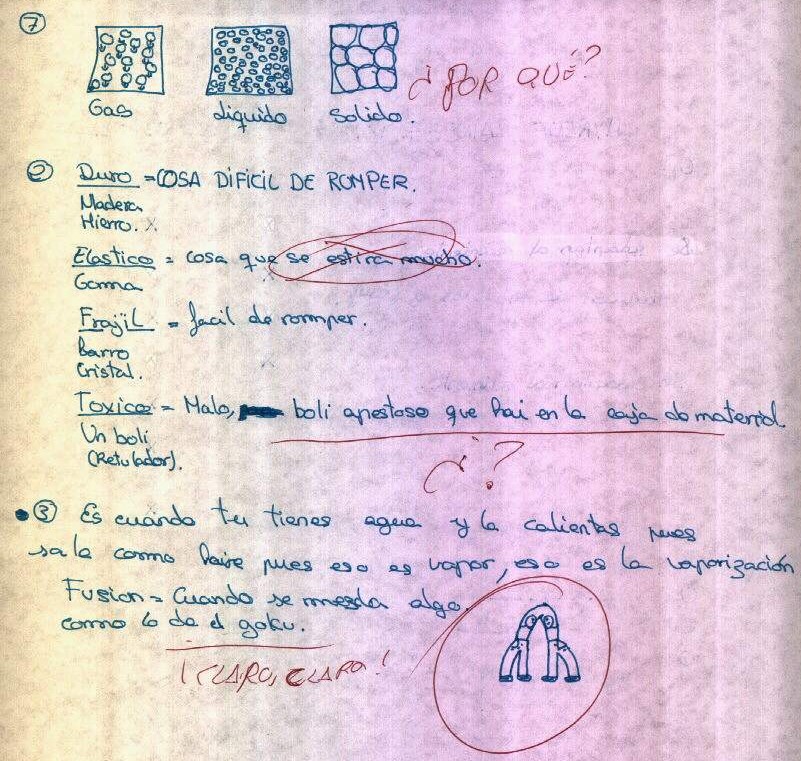 7
Gas Liquido Solido.
¿POR QUÉ?
2 Duro = COSA DIFICIL DE ROMPER.
Madera
Hierro.
Elastico = cosa que se estira mucho.
Goma
Frajil = facil de rommper.
Barro
Cristal.
Toxico = Malo, boli apestoso que hai en la caja do material.
Un boli
(Retulador).
¿?
3 Es cuando tu tienes agua y la calientas pues
sala como haire pues eso es vapor, eso es la vaporización
Fusion = Cuando se mezcla algo.
como lo de el goku.
¡CLARO, CLARO!